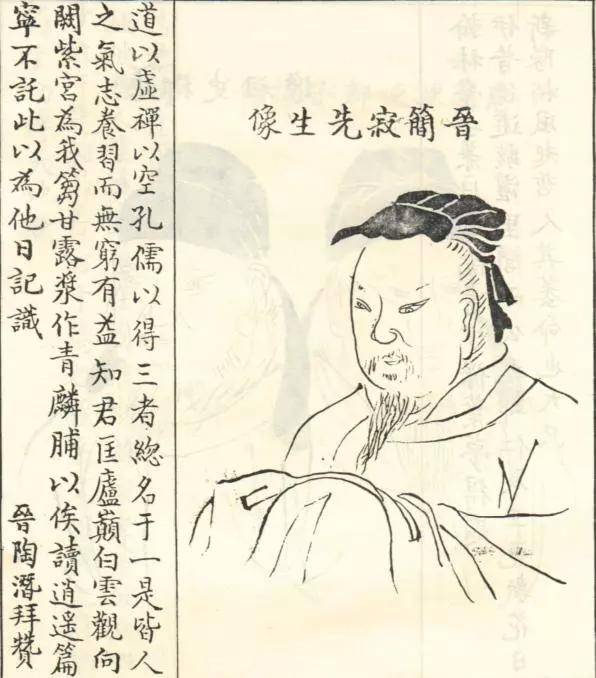 晉簡寂先生像
道以虛禪以空孔儒以得三者緫名于一是皆人
之氣志養習而無窮有益知君匡廬巔白雲觀向
闕紫宮為我芻甘露漿作青麟脯以俟讀逍遥篇
寧不託此以為他日記識
晉陶潛拜贊